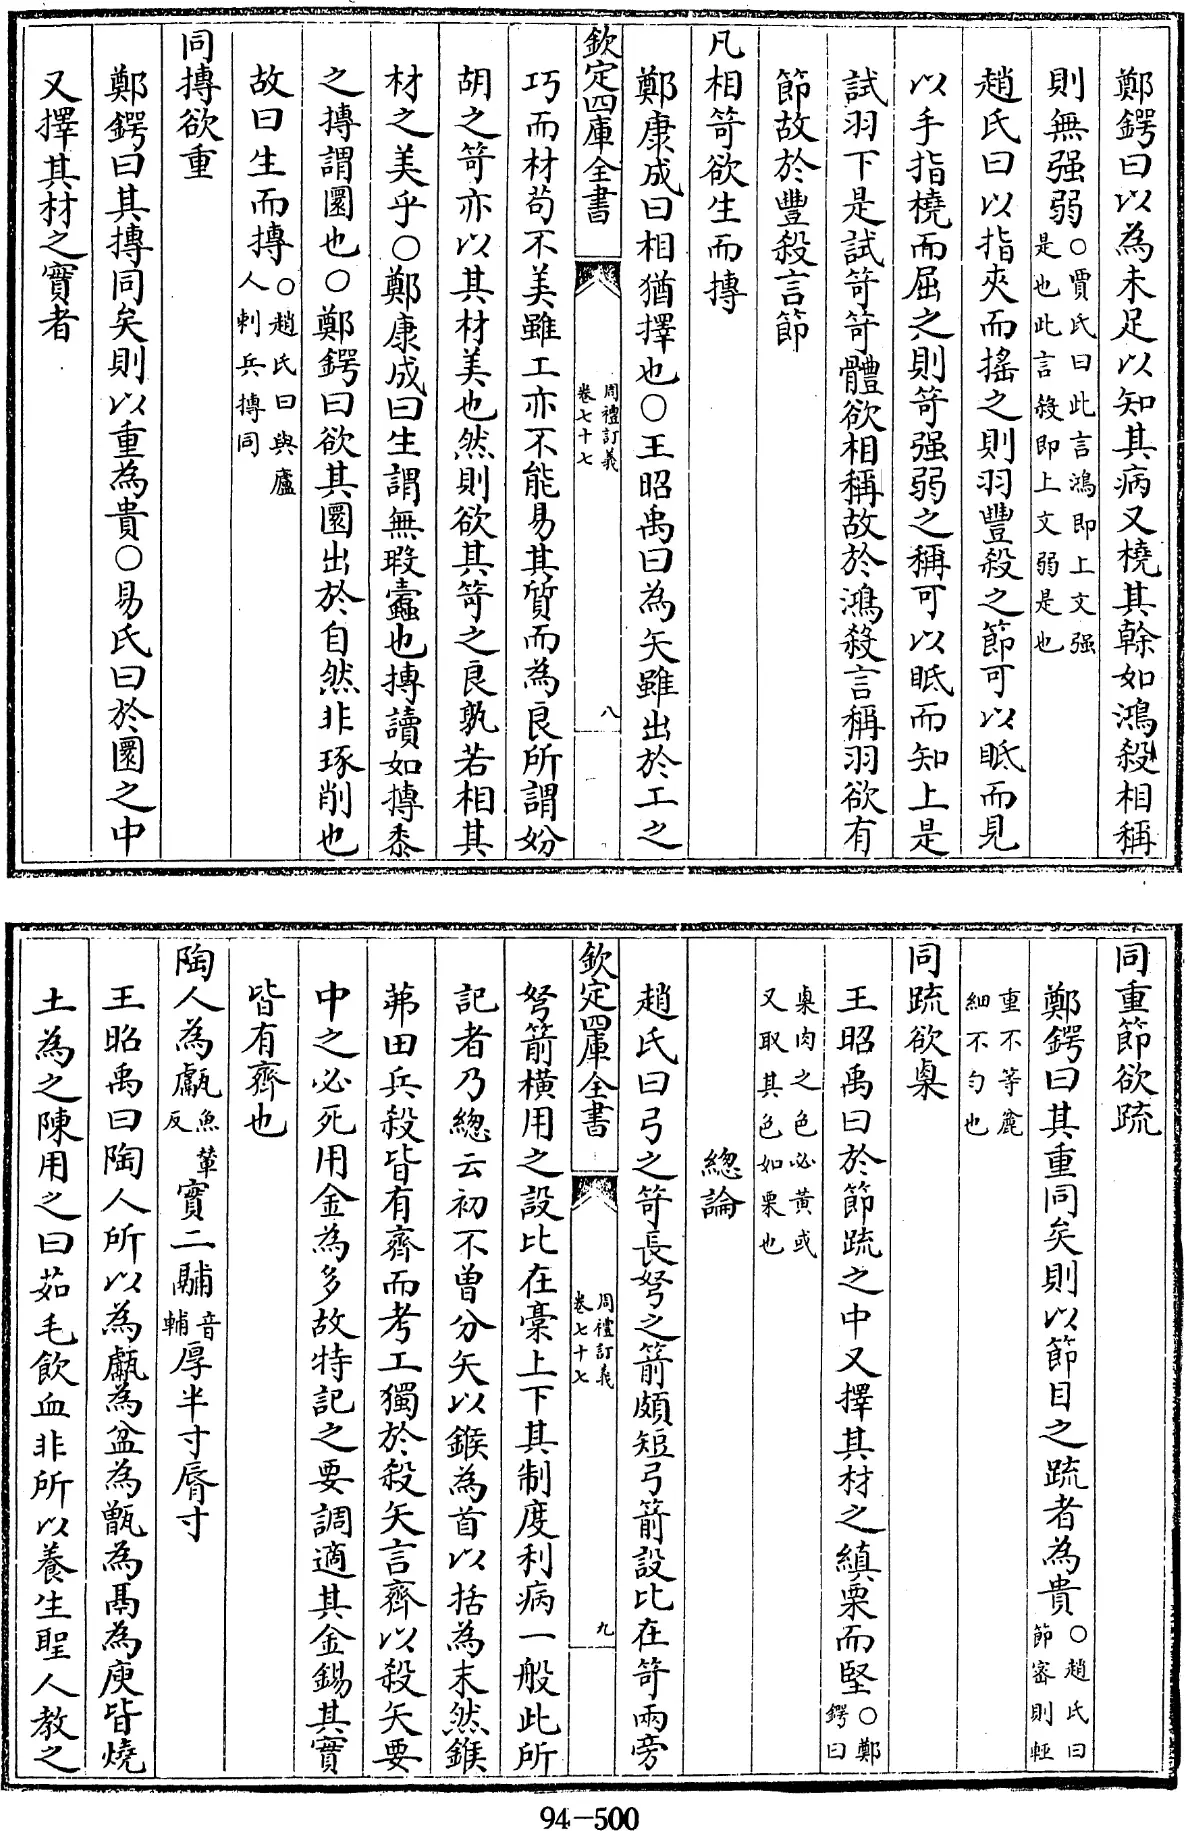 鄭鍔曰以為未足以知其病又橈其幹如鴻殺相稱
則無强弱○賈氏曰此言鴻即上文强是也此言殺即上文弱是也
趙氏曰以指夾而搖之則羽豐殺之節可以眡而見
以手指橈而屈之則笴强弱之稱可以眡而知上是
試羽下是試笴笴體欲相稱故於鴻殺言稱羽欲有
節故於豐殺言節
凡相笴欲生而摶
鄭康成曰相猶擇也○王昭禹曰為矢雖出於工之
欽定四庫全書
周禮訂義
卷七十七
八
巧而材苟不美雖工亦不能易其質而為良所謂妢
胡之笴亦以其材美也然則欲其笴之良孰若相其
材之美乎○鄭康成曰生謂無瑕蠧也摶讀如摶黍
之摶謂圜也○鄭鍔曰欲其圜出於自然非琢削也
故曰生而摶○趙氏曰與廬人刺兵摶同
同摶欲重
鄭鍔曰其摶同矣則以重為貴○易氏曰於圜之中
又擇其材之實者
同重節欲疏
鄭鍔曰其重同矣則以節目之疏者為貴○趙氏曰節密則輕
重不等麄細不勻也
同疏欲㮚
王昭禹曰於節疏之中又擇其材之縝栗而堅○鄭鍔曰
㮚肉之色必黄或又取其色如栗也
總論
趙氏曰弓之笴長弩之箭頗短弓箭設比在笴兩旁
欽定四庫全書
周禮訂義
卷七十七
九
弩箭横用之設比在槀上下其制度利病一般此所
記者乃總云初不曾分矢以鍭為首以括為末然鍭
茀田兵殺皆有齊而考工獨於殺矢言齊以殺矢要
中之必死用金為多故特記之要調適其金錫其實
皆有齊也
陶人為甗魚輦反實二鬴音輔厚半寸脣寸
王昭禹曰陶人所以為甗為盆為甑為鬲為庾皆燒
土為之陳用之曰茹毛飲血非所以養生聖人教之
94-500